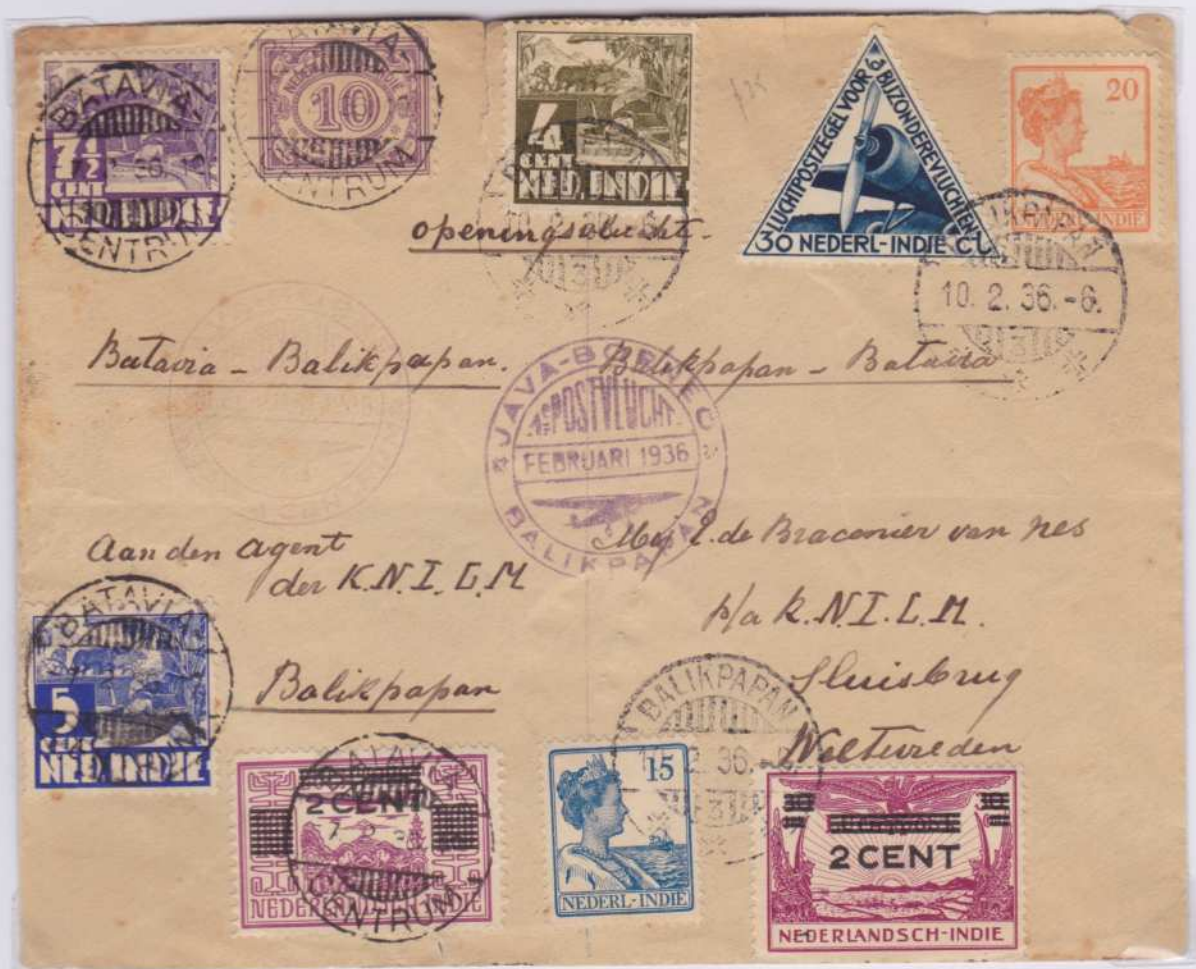 BATAVIA-
CENTRUM
7½
CENT
NED. INDIE
BATAVIA-
CENTRUM
10
4
CENT
NED. INDIE
LUCHTPOSTZEGEL VOOR BIJZONDERE VLUCHTEN
30 NEDERL-INDIE CT
20
NEDERL-INDIE
10. 2. 36.-6.
openingsvlucht.
Batavia - Balikpapan. Balikpapan - Batavia
JAVA-BORNEO
1e POSTVLUCHT
FEBRUARI 1936
BALIKPAPAN
Aan den Agent
der K.N.I.L.M
Balikpapan
Mej. L. de Braconier van Nes
p/a K.N.I.L.M.
Sluisbrug
Weltevreden
BATAVIA-
CENTRUM
5
CENT
NED. INDIE
BATAVIA
CENTRUM
2 CENT
NEDERLANDSCH-INDIE
15
NEDERL-INDIE
BALIKPAPAN
2. 36.
2 CENT
NEDERLANDSCH-INDIE